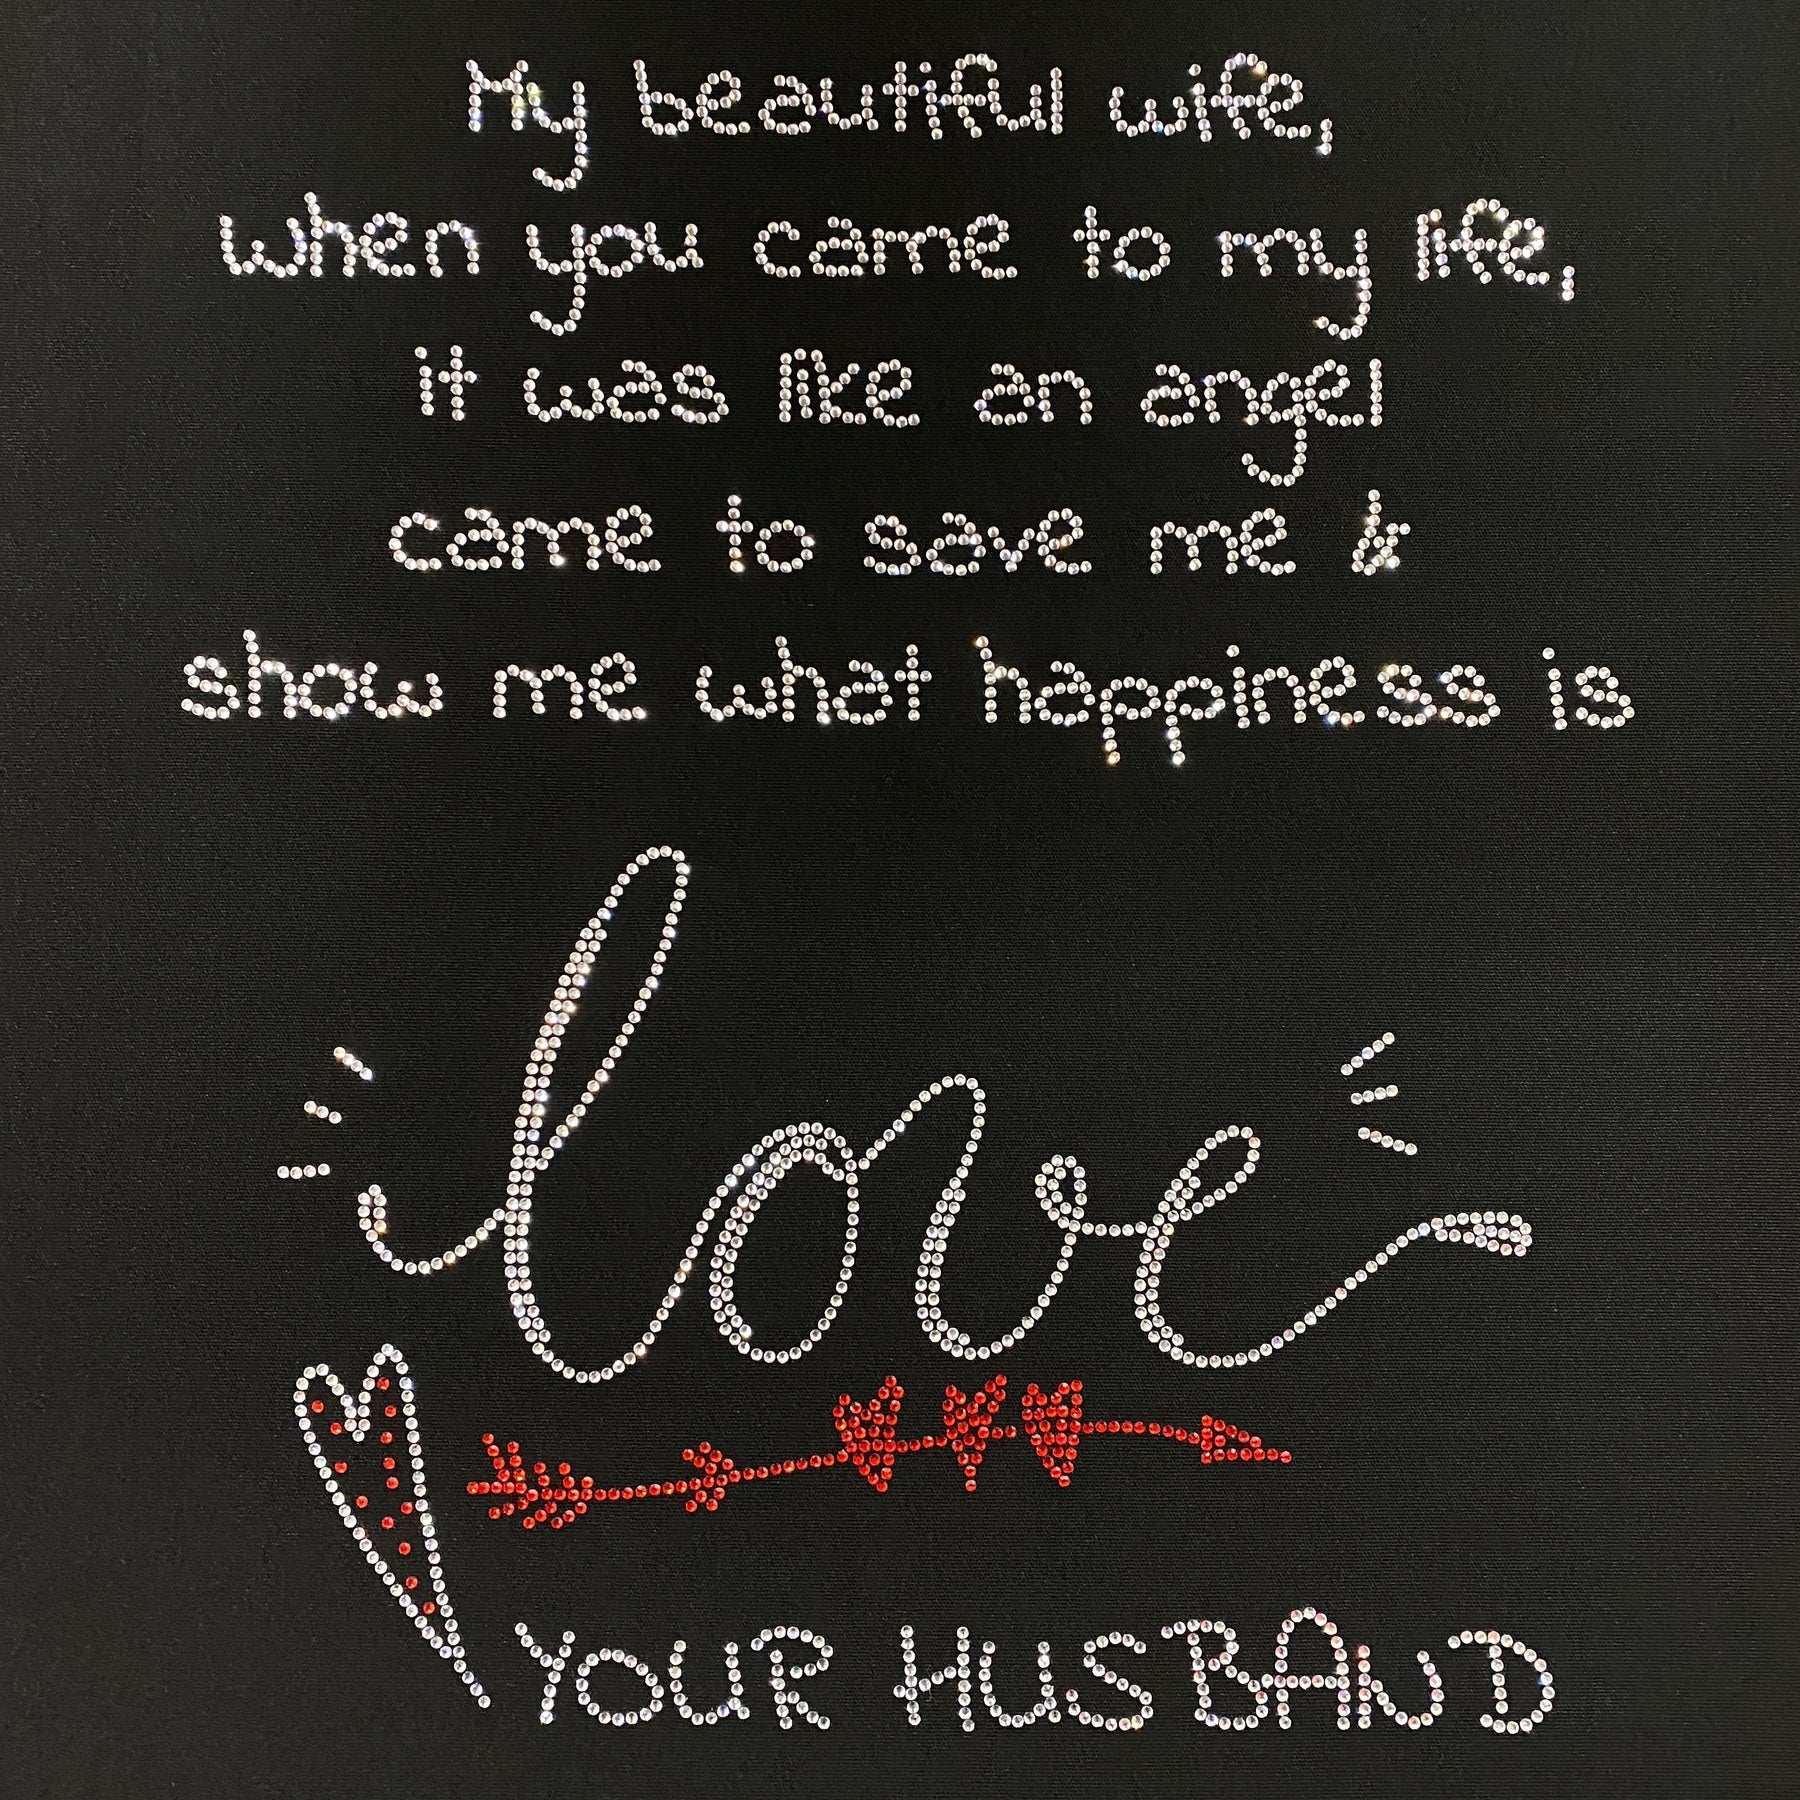 My beautiful wife,
when you came to my life,
it was like an angel
came to save me &
show me what happiness is
love
YOUR HUSBAND